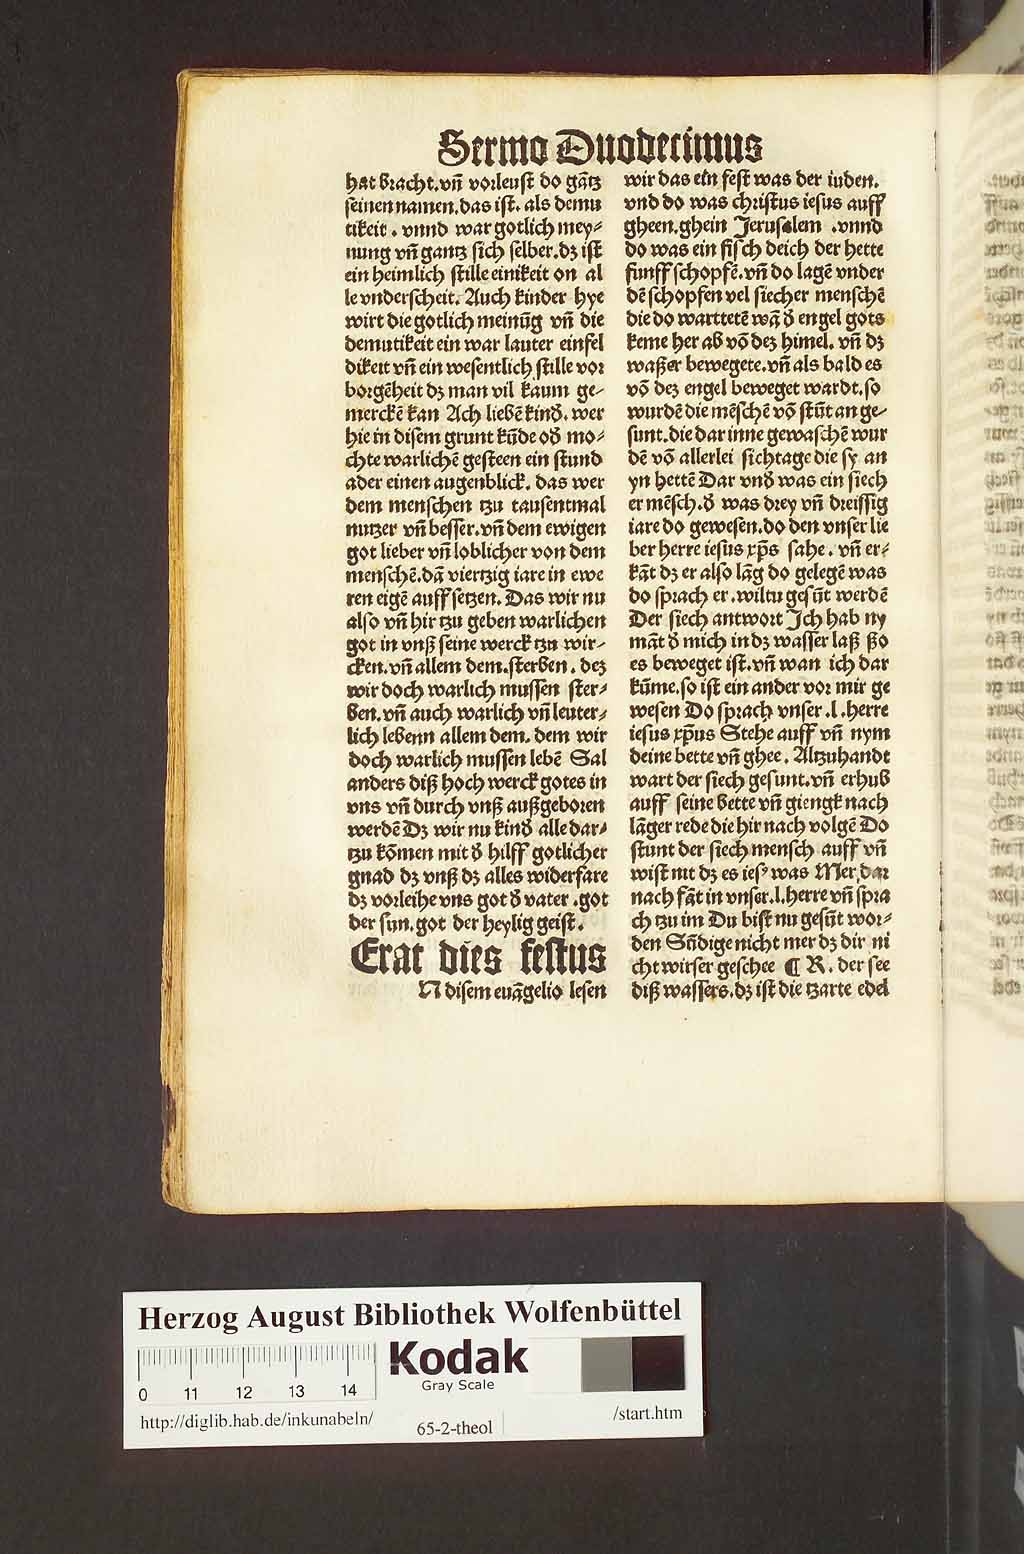 Sermo Duodecimus
hat bracht.vñ vorleust do gãtz
seinen namen.das ist. als demu
tikeit . vnnd war gotlich mey⸗
nung vñ gantz sich selber.dʒ ist
ein heimlich stille einikeit on al
le vnderscheit. Auch kinder hye
wirt die gotlich meinũg vñ die
demutikeit ein war lauter einfel
dikeit vñ ein wesentlich stille vor
borgẽheit dʒ man vil kaum ge⸗
merckẽ kan Ach liebẽ kinð. wer
hie in disem grunt kũde oð mo⸗
chte warlichẽ gesteen ein stund
ader einen augenblick. das wer
dem menschen tzu tausentmal
nutzer vñ besser.vñ dem ewigen
got lieber vñ loblicher von dem
menschẽ.dã viertzig iare in ewe
ren eigẽ auff setzen. Das wir nu
also vñ hir tzu geben warlichen
got in vnß seine werck tzu wir⸗
cken.vñ allem dem.sterben. deʒ
wir doch warlich mussen ster⸗
ben.vñ auch warlich vñ leuter⸗
lich lebenn allem dem. dem wir
doch warlich mussen lebẽ Sal
anders diß hoch werck gotes in
vns vñ durch vnß außgeboren
werdẽ Dʒ wir nu kinð alle dar⸗
tzu kõmen mit ð hilff gotlicher
gnad dʒ vnß dʒ alles widerfare
dʒ vorleihe vns got ð vater .got
der sun.got der heylig geist.
Erat dies festus
N disem euãgelio lesen
wir das ein fest was der iuden.
vnd do was christus iesus auff
gheen.ghein Jerusalem .vnnd
do was ein fisch deich der hette
funff schopfẽ.vñ do lagẽ vnder
dẽ schopfen vel siecher menschẽ
die do warttetẽ wã ð engel gots
keme her ab võ deʒ himel. vñ dʒ
waßer bewegete.vñ als bald es
võ deʒ engel beweget wardt.so
wurdẽ die mẽschẽ võ stũt an ge⸗
sunt.die dar inne gewaschẽ wur
dẽ võ allerlei sichtage die sy an
yn hettẽ Dar vnð was ein siech
er mẽsch.ð was drey vñ dreissig
iare do gewesen.do den vnser lie
ber herre iesus xp̃s sahe. vñ er⸗
kãt dʒ er also lãg do gelegẽ was
do sprach er .wiltu gesũt werdẽ
Der siech antwort Jch hab ny
mãt ð mich in dʒ wasser laß ßo
es beweget ist.vñ wan ich dar
kũme.so ist ein ander vor mir ge
wesen Do sprach vnser .l.herre
iesus xp̃us Stehe auff vñ nym
deine bette vñ ghee. Altzuhandt
wart der siech gesunt.vñ erhub
auff seine bette vñ giengk nach
lãger rede die hir nach volgẽ Do
stunt der siech mensch auff vñ
wist nit dʒ es iesꝰ was Mer dar
nach fãt in vnser.l.herre vñ spra
ch tzu im Du bist nu gesũt wor⸗
den Sũdige nicht mer dʒ dir ni
cht wirser geschee ¶ R. der see
diß wassers.dʒ ist die tzarte edel
Herzog August Bibliothek Wolfenbüttel
Kodak
Gray Scale
0 11 12 13 14
http://diglib.hab.de/inkunabeln/
65-2-theol
/start.htm